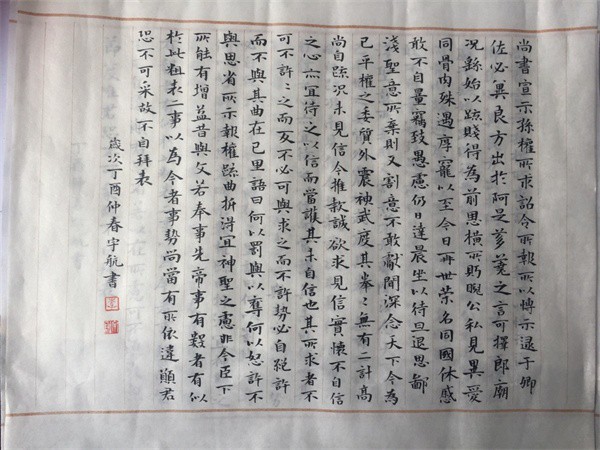 尚書宣示孫權所求詔令所報所以博示逮于卿
佐必異良方出於阿是芻蕘之言可擇郎廟
況繇始以疏賤得為前思橫所眄睨公私見異愛
同骨肉殊遇厚寵以至今日再世榮名同國休慼
敢不自量竊致愚慮仍日達晨坐以待旦退思鄙
淺聖意所棄則又割意不敢獻聞深念天下今為
已平權之委質外震神武度其拳〻無有二計高
尚自疏況未見信今推款誠欲求見信實懷不自信
之心亦宜待之以信而當護其未自信也其所求者不
可不許〻之而反不必可與求之而不許勢必自絕許
而不與其曲在己里語曰何以罰與以奪何以怒許不
與思省所示報權疏曲折得宜神聖之慮非今臣下
所能有增益昔與文若奉事先帝事有數者有似
於此粗表二事以為今者事勢尚當有所依違願君
恐不可采故不自拜表
歲次丁酉仲春宇航書